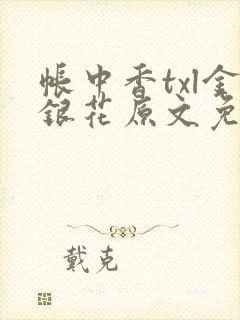 帳中香txl金
銀花原文免
戴克